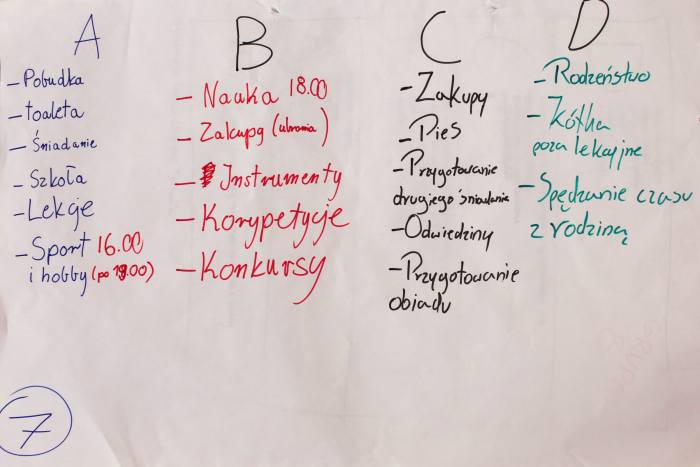 A
- Pobudka
- toaleta
- Śniadanie
- Szkoła
- Lekcje
- Sport 16.00
i hobby (po 19.00)
B
- Nauka 18.00
- Zakupy (ubrania)
- Instrumenty
- Korypetycje
- Konkursy
C
- Zakupy
- Pies
- Przygotowanie
drugiego śniadania
- Odwiedziny
- Przygotowanie
obiadu
D
- Rodzeństwo
- Kółka
poza lekcyjne
- Spędzanie czasu
z rodziną
7